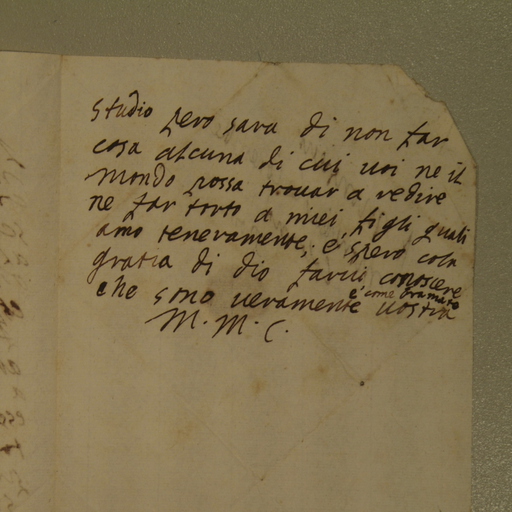 studio pero sara di non far
cosa alcuna di cui voi ne il
mondo possa trovar a redire
ne far torto a miei figli quali
amo teneramente, e spero cola
gratia di dio farvi conoscere
che sono veramente e come bramate vostra
M. M. C.